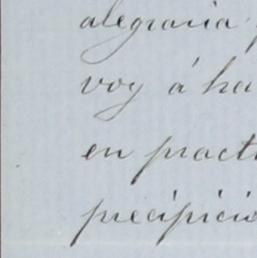 alegraria
voy á ha
en pract
precipicio